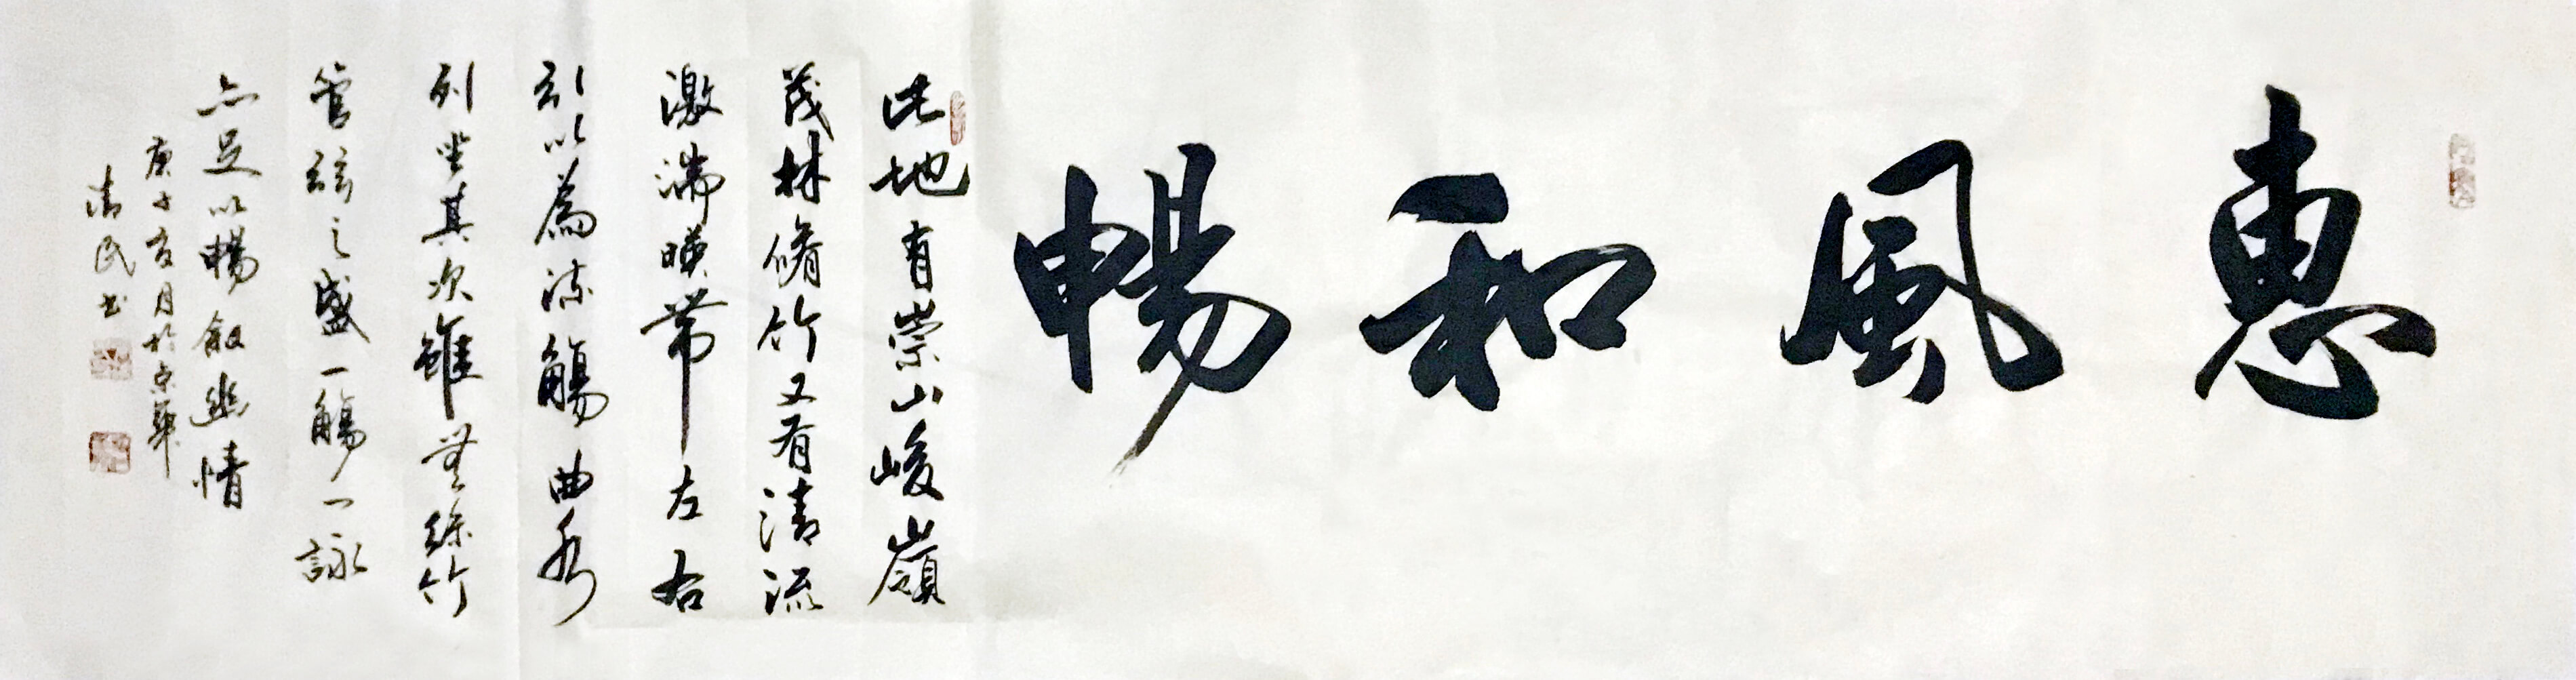 惠風和暢
此地有崇山峻嶺
茂林脩竹又有清流
激湍暎帶左右
引以為流觴曲水
列坐其次雖無絲竹
管絃之盛一觴一詠
亦足以暢敘幽情
庚子夏月於京華
清民书